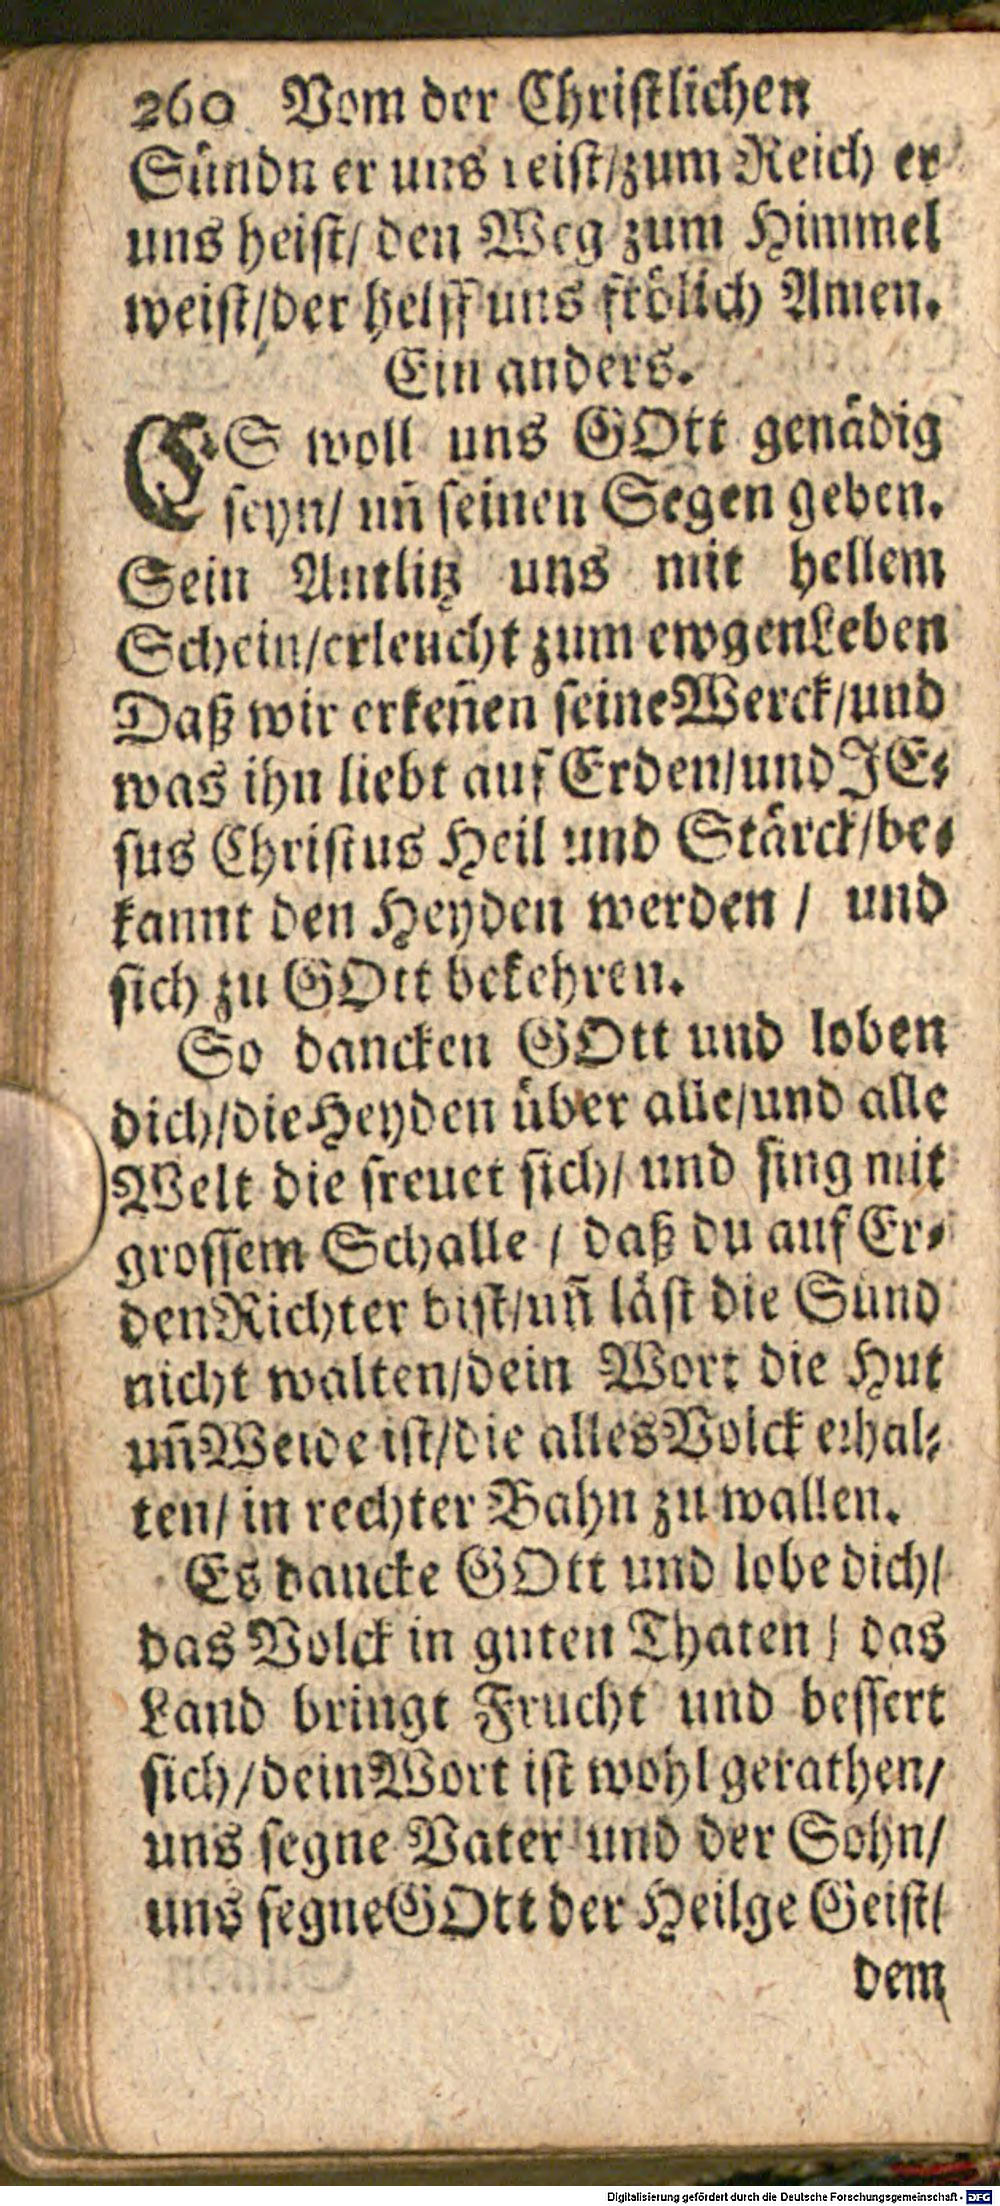 260 Vom der Chriſtlichen
Sündn er uns reiſt/zum Reich er
uns heiſt/ den Weg zum Himmel
weiſt/der helff uns frölich Amen.
Ein anders.
ES woll uns GOtt genädig
ſeyn/ uñ ſeinen Segen geben.
Sein Antlitz uns mit hellem
Schein/erleucht zum ewgen Leben
Daß wir erkeñen ſeine Werck/und
was ihn liebt auf Erden/und JE-
ſus Chriſtus Heil und Stärck/be-
kannt den Heyden werden / und
ſich zu GOtt bekehren.
So dancken GOtt und loben
dich/die Heyden über alle/und alle
Welt die freuet ſich/ und ſing mit
groſſem Schalle / daß du auf Er-
den Richter biſt/uñ läſt die Sünd
nicht walten/dein Wort die Hut
uñ Weide iſt/die alles Volck erhal-
ten/ in rechter Bahn zu wallen.
Es dancke GOtt und lobe dich/
das Volck in guten Thaten / das
Land bringt Frucht und beſſert
ſich/dein Wort iſt wohl gerathen/
uns ſegne Vater und der Sohn/
uns ſegne GOtt der Heilge Geiſt/
dem
Digitalisierung gefördert durch die Deutsche Forschungsgemeinschaft - DFG